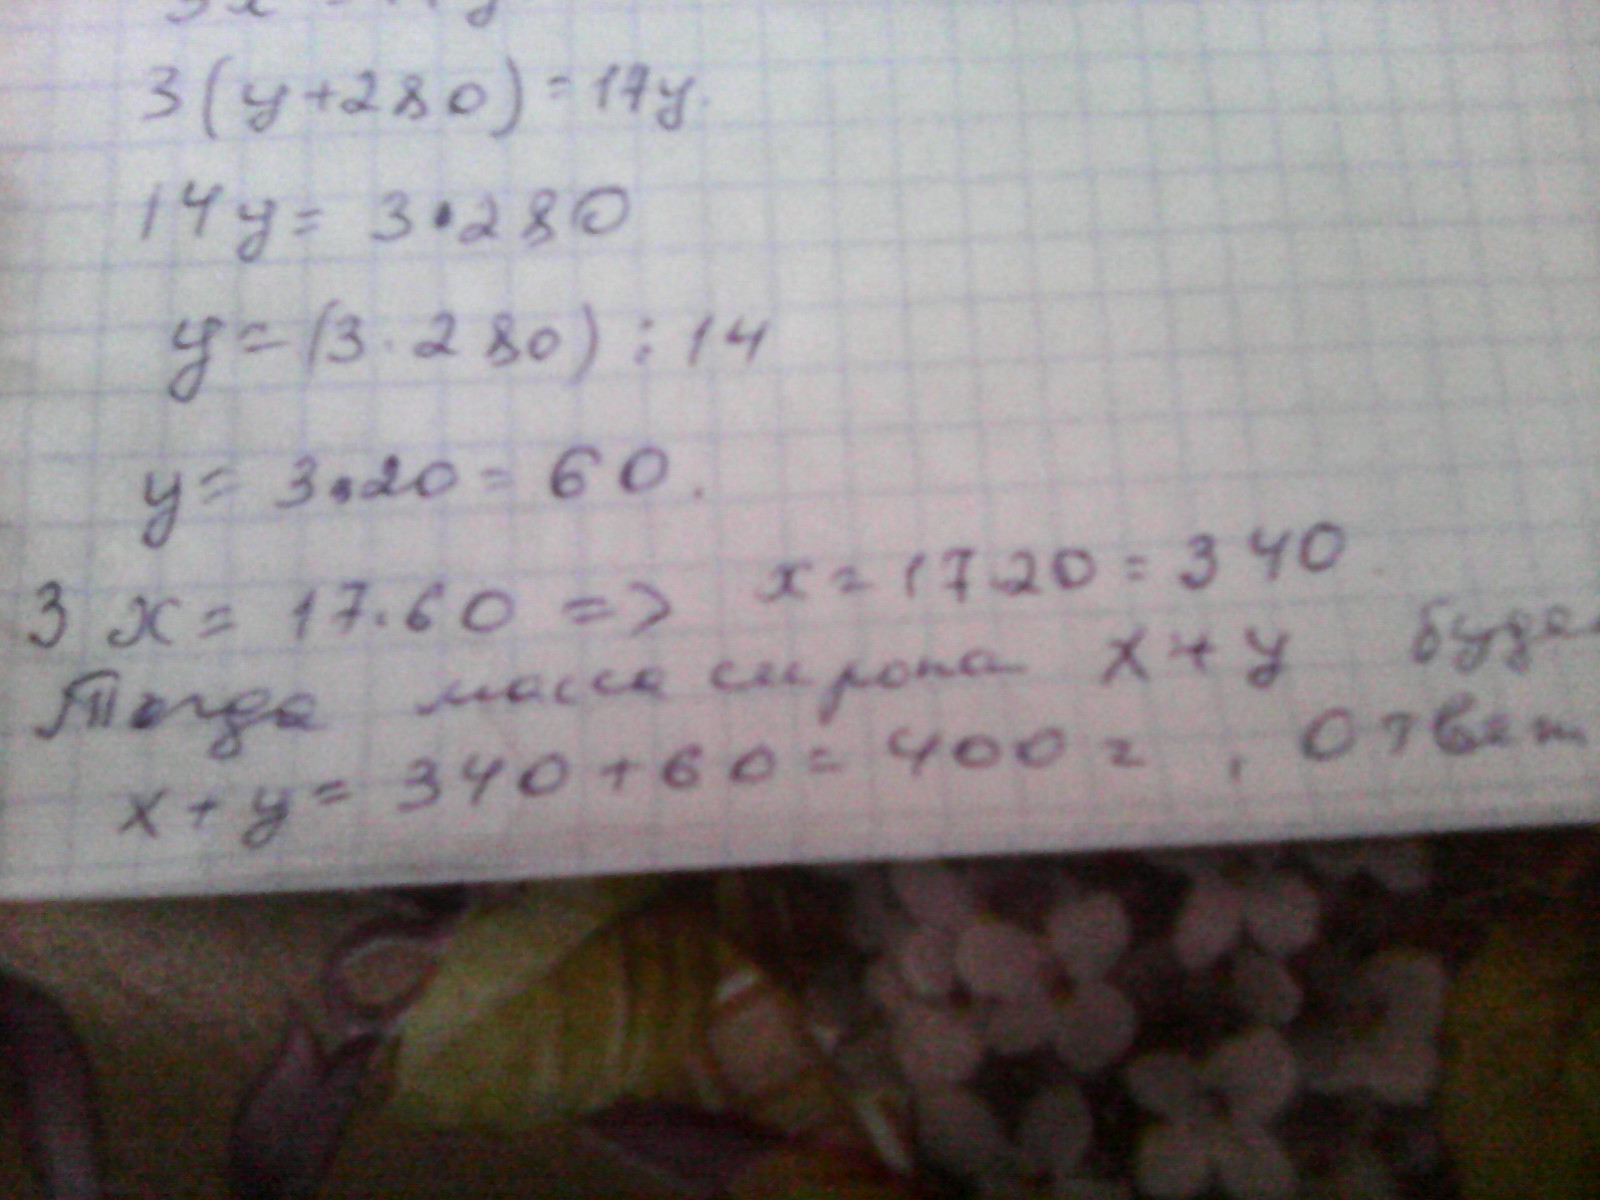 3(y+280)=17y.
14y= 3•280
y=(3·280):14
y= 3•20=60.
3x= 17·60 => x=17·20=340
Тогда масса сиропа x+y
x+y=340+60=400г, Ответ